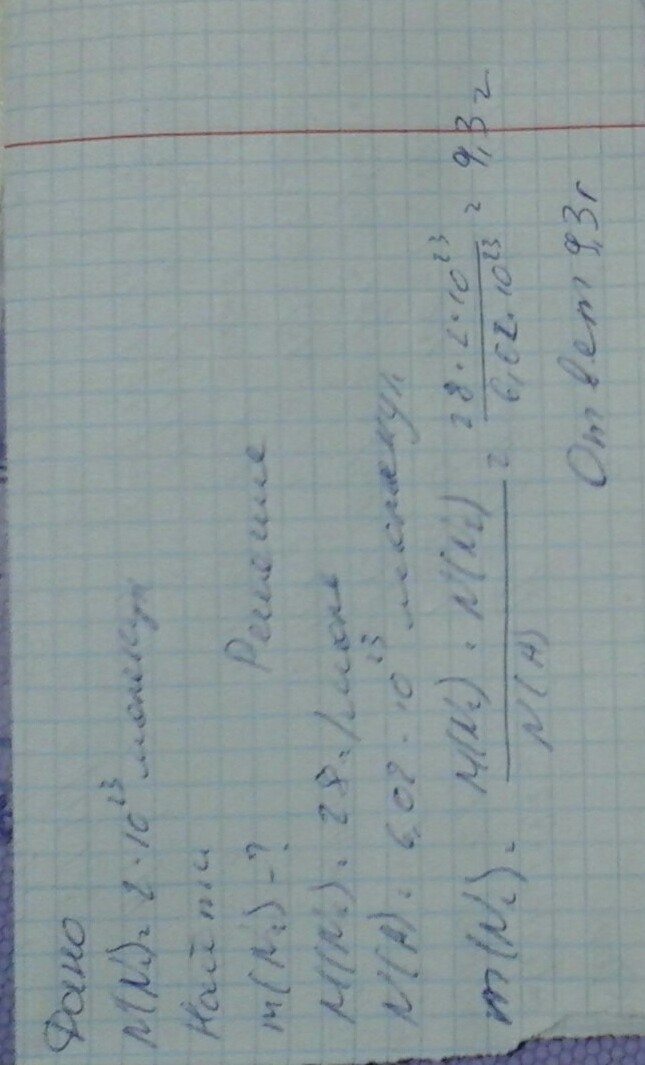 Дано
N(N₂)= 2·10²³ молекул
Найти
m(N₂)-?
Решение
M(N₂)= 28г/моль
N(A)= 6,02·10²³ молекул
m(N₂)= M(N₂)·N(N₂) / N(A) = 28·2·10²³ / 6,02·10²³ = 9,3г
Ответ 9,3г